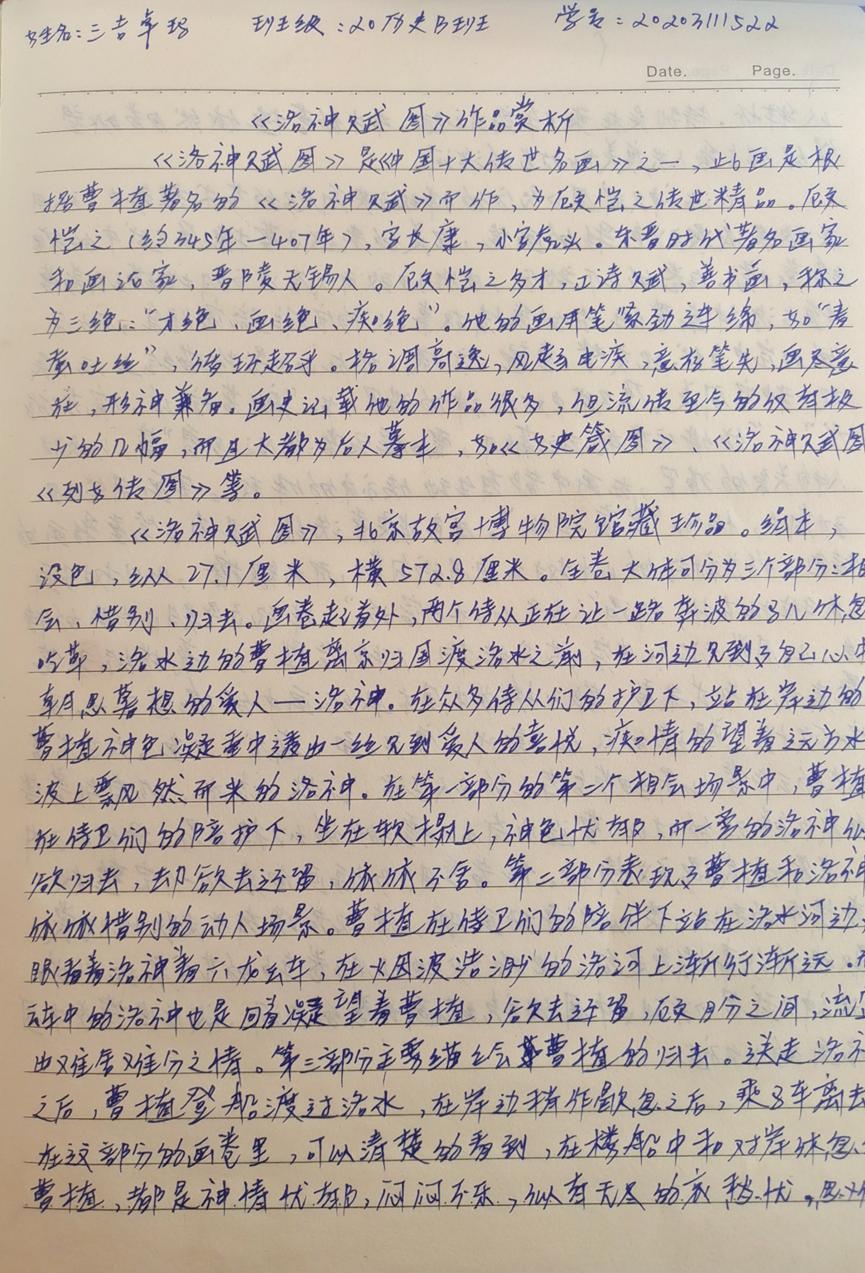 姓名:三吉卓玛 班级:20历史B班 学号:20203111522
Date. Page.
《洛神赋图》作品赏析
《洛神赋图》是《中国十大传世名画》之一,此画是根
据曹植著名的《洛神赋》而作,为顾恺之传世精品。顾
恺之(约345年—407年),字长康,小字虎头。东晋时代著名画家
和画论家,晋陵无锡人。顾恺之多才,工诗赋,善书画,称之
为三绝:"才绝、画绝、痴绝"。他的画用笔紧劲连绵,如"春
蚕吐丝",循环超乎。格调高逸,风趋电疾,意存笔先,画尽意
在,形神兼备。画史记载他的作品很多,但流传至今的仅有极
少的几幅,而且大都为后人摹本,如《女史箴图》、《洛神赋图
《列女传图》等。
《洛神赋图》,北京故宫博物院馆藏珍品。绢本,
设色,纵27.1厘米,横572.8厘米。全卷大体可分为三个部分:相
会、惜别、归去。画卷起首处,两个侍从正在让一路奔波的马儿休息
吃草,洛水边的曹植离京归国渡洛水之前,在河边见到了自己心中
朝思暮想的爱人—洛神。在众多侍从们的护卫下,站在岸边的
曹植神色凝重中透出一丝见到爱人的喜悦,痴情的望着远方水
波上飘然而来的洛神。在第一部分的第二个相会场景中,曹植
在侍卫们的陪护下,坐在软榻上,神色忧郁,而一旁的洛神似
欲归去,却欲去还留,依依不舍。第二部分表现了曹植和洛神
依依惜别的动人场景。曹植在侍卫们的陪伴下站在洛水河边,
眼看着洛神着六龙云车,在烟波浩渺的洛河上渐行渐远。而
车中的洛神也是回首凝望着曹植,欲去还留,顾盼之间,流
出难舍难分之情。第三部分主要描绘曹植的归去。送走洛神
之后,曹植登船渡过洛水,在岸边稍作歇息之后,乘马车离去
在这部分的画卷里,可以清楚的看到,在楼船中和对岸休息
曹植,都是神情忧郁,闷闷不乐,似有无尽的哀愁忧。思